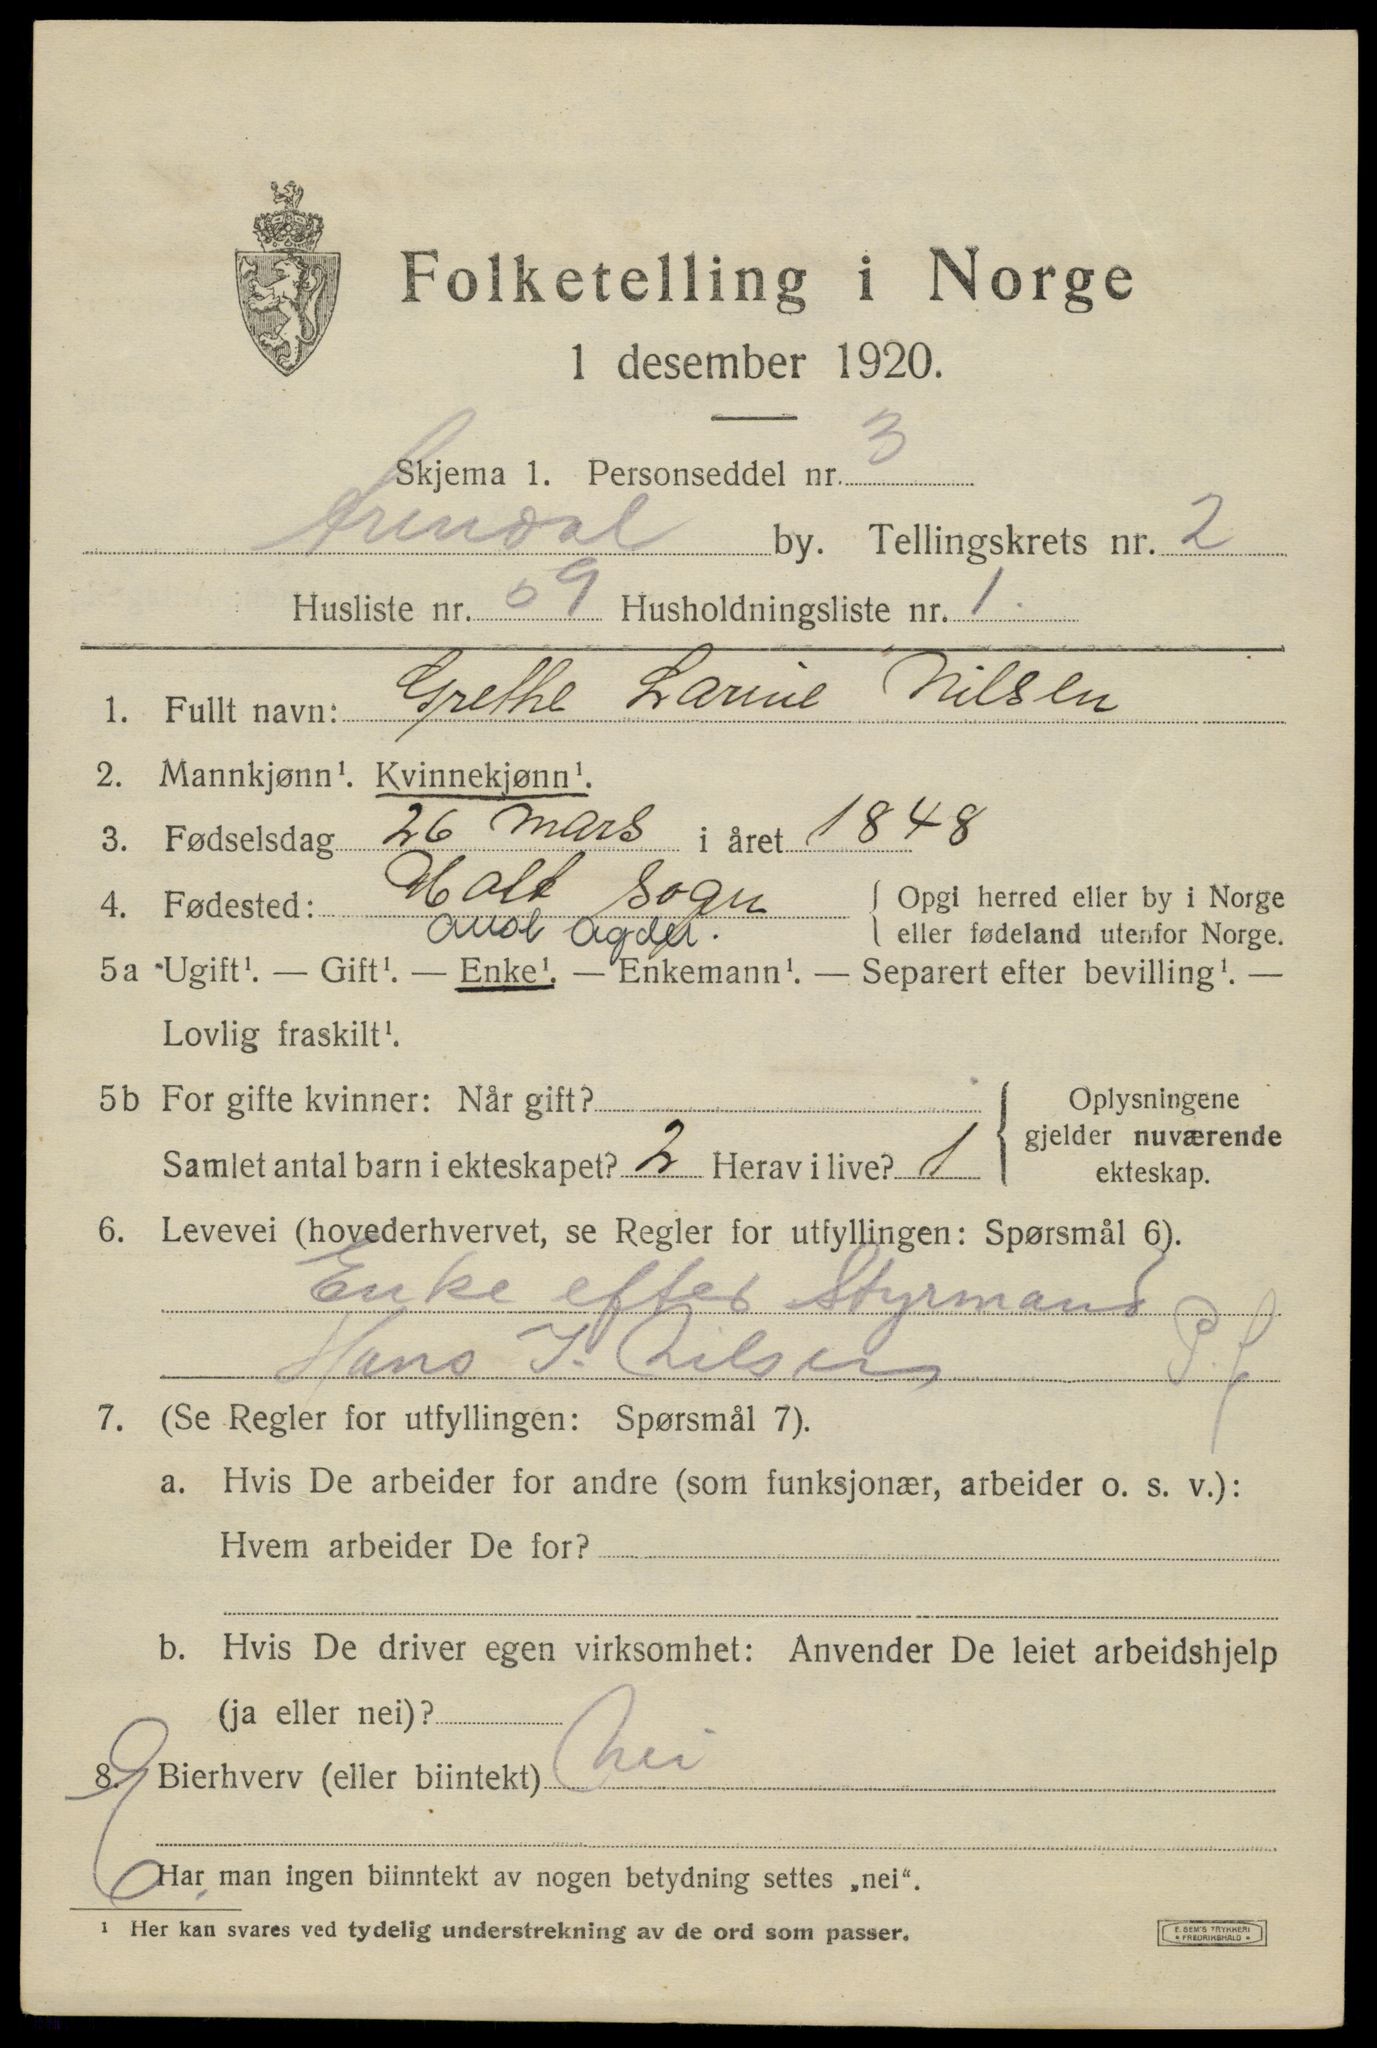 Folketelling i Norge
1 desember 1920.
Skjema 1. Personseddel nr. 3
Arendal by. Tellingskrets nr. 2
Husliste nr. 59 Husholdningsliste nr. 1.
1. Fullt navn: Grethe Larine Nilsen
2. Mannkjønn¹. Kvinnekjønn¹.
3. Fødselsdag 26 mars i året 1848
4. Fødested: Holt sogn { Opgi herred eller by i Norge
Aust Agder. eller fødeland utenfor Norge.
5a Ugift¹. — Gift¹. — Enke¹. — Enkemann¹. — Separert efter bevilling¹. —
Lovlig fraskilt¹.
5b For gifte kvinner: Når gift? { Oplysningene
gjelder nuværende
Samlet antal barn i ekteskapet? 2 Herav i live? 1 ekteskap.
6. Levevei (hovederhvervet, se Regler for utfyllingen: Spørsmål 6).
Enke efter Styrmand
Hans J. Nilsen P.f
7. (Se Regler for utfyllingen: Spørsmål 7).
a. Hvis De arbeider for andre (som funksjonær, arbeider o. s. v.):
Hvem arbeider De for?
b. Hvis De driver egen virksomhet: Anvender De leiet arbeidshjelp
(ja eller nei)?
8. Bierhverv (eller biintekt) Nei
Har man ingen biinntekt av nogen betydning settes „nei“.
¹ Her kan svares ved tydelig understrekning av de ord som passer.
E. SEM'S TRYKKERI
• FREDRIKSHALD •